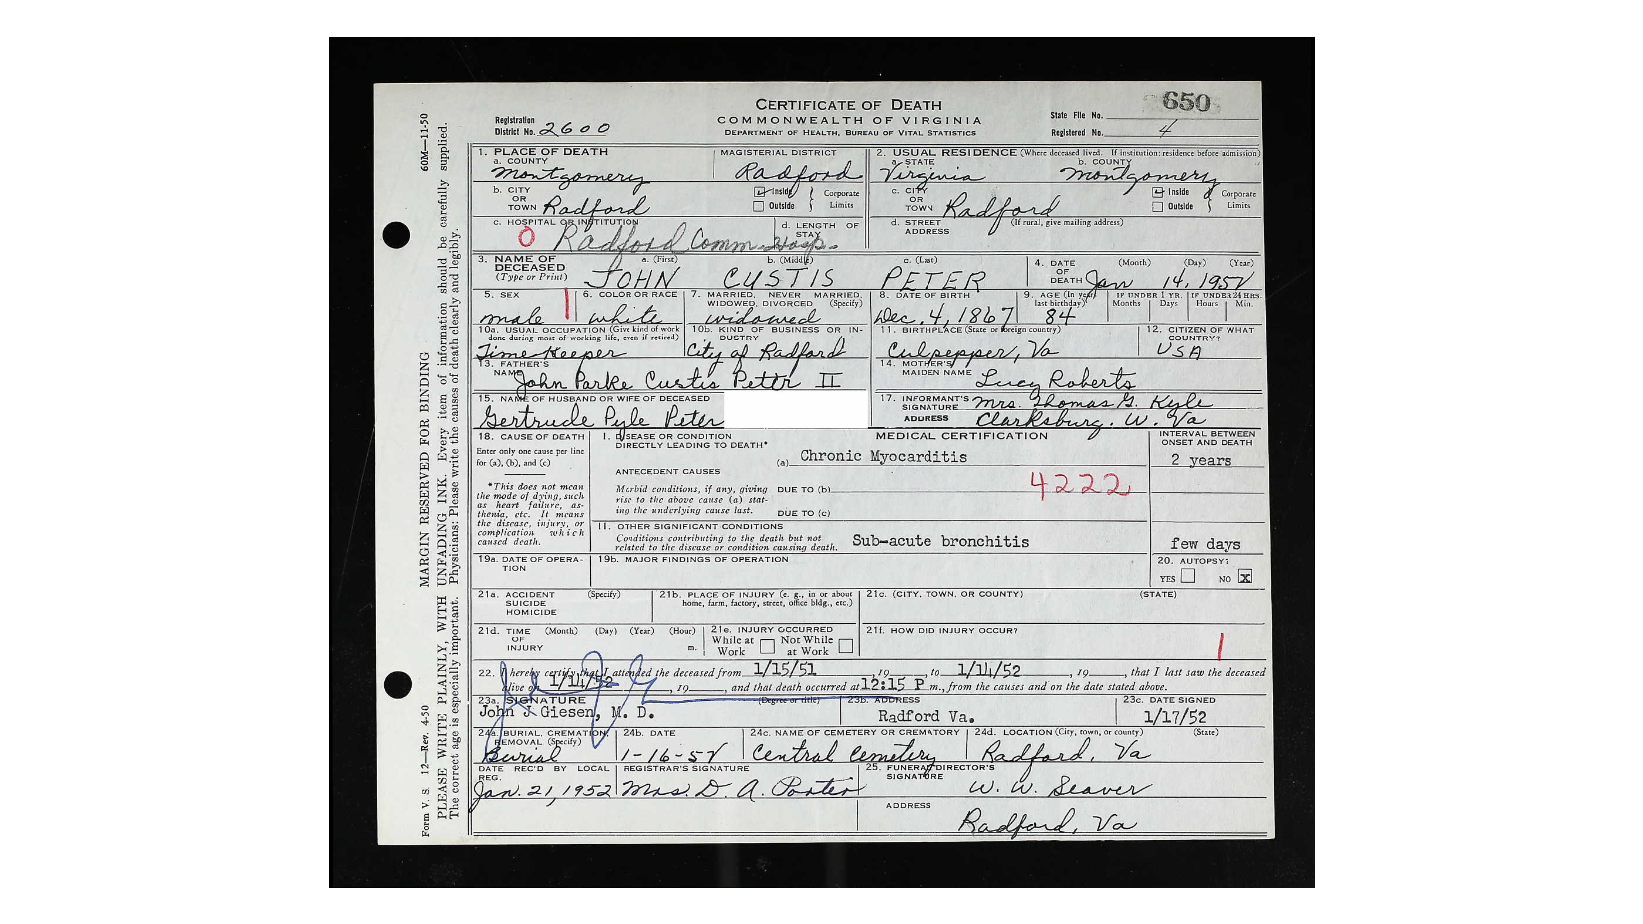 CERTIFICATE OF DEATH
COMMONWEALTH OF VIRGINIA
DEPARTMENT OF HEALTH, BUREAU OF VITAL STATISTICS
Registration District No. 2600
State File No. 650
Registered No. 4
60M—11-50
MARGIN RESERVED FOR BINDING
PLEASE WRITE PLAINLY, WITH UNFADING INK. Every item of information should be carefully supplied.
The correct age is especially important. Physicians: Please write the causes of death clearly and legibly.
Form V. S. 12—Rev. 4-50
1. PLACE OF DEATH
a. COUNTY Montgomery
MAGISTERIAL DISTRICT Radford
2. USUAL RESIDENCE (Where deceased lived. If institution: residence before admission)
a. STATE Virginia
b. COUNTY Montgomery
b. CITY OR TOWN Radford
Inside Outside Corporate Limits
c. CITY OR TOWN Radford
Inside Outside Corporate Limits
c. HOSPITAL OR INSTITUTION
0 Radford Comm. Hosp.
d. LENGTH OF STAY
d. STREET ADDRESS (If rural, give mailing address)
3. NAME OF DECEASED (Type or Print)
a. (First) JOHN
b. (Middle) CUSTIS
c. (Last) PETER
4. DATE OF DEATH (Month) (Day) (Year) Jan 14, 1952
5. SEX male 1
6. COLOR OR RACE white
7. MARRIED, NEVER MARRIED, WIDOWED, DIVORCED (Specify) widowed
8. DATE OF BIRTH Dec. 4, 1867
9. AGE (In years last birthday) 84
IF UNDER 1 YR. Months Days
IF UNDER 24 HRS. Hours Min.
10a. USUAL OCCUPATION (Give kind of work done during most of working life, even if retired) Time Keeper
10b. KIND OF BUSINESS OR INDUSTRY City of Radford
11. BIRTHPLACE (State or foreign country) Culpepper, Va
12. CITIZEN OF WHAT COUNTRY? USA
13. FATHER'S NAME John Parke Custis Peter II
14. MOTHER'S MAIDEN NAME Lucy Roberts
15. NAME OF HUSBAND OR WIFE OF DECEASED
Gertrude Pyle Peter
17. INFORMANT'S SIGNATURE Mrs. Thomas G. Kyle
ADDRESS Clarksburg. W. Va
18. CAUSE OF DEATH
Enter only one cause per line for (a), (b), and (c)
*This does not mean the mode of dying, such as heart failure, asthenia, etc. It means the disease, injury, or complication which caused death.
MEDICAL CERTIFICATION
INTERVAL BETWEEN ONSET AND DEATH
I. DISEASE OR CONDITION DIRECTLY LEADING TO DEATH*
(a) Chronic Myocarditis
2 years
ANTECEDENT CAUSES
Morbid conditions, if any, giving rise to the above cause (a) stating the underlying cause last.
DUE TO (b) 4222
DUE TO (c)
II. OTHER SIGNIFICANT CONDITIONS
Conditions contributing to the death but not related to the disease or condition causing death.
Sub-acute bronchitis
few days
19a. DATE OF OPERATION
19b. MAJOR FINDINGS OF OPERATION
20. AUTOPSY?
YES NO X
21a. ACCIDENT SUICIDE HOMICIDE (Specify)
21b. PLACE OF INJURY (e. g., in or about home, farm, factory, street, office bldg., etc.)
21c. (CITY, TOWN, OR COUNTY) (STATE)
21d. TIME OF INJURY (Month) (Day) (Year) (Hour) m.
21e. INJURY OCCURRED
While at Work Not While at Work
21f. HOW DID INJURY OCCUR?
1
22. I hereby certify that I attended the deceased from 1/15/51, 19 to 1/14/52, 19, that I last saw the deceased
alive on 1/14/52, 19, and that death occurred at 12:15 P m., from the causes and on the date stated above.
23a. SIGNATURE (Degree or title)
John J Giesen, M. D.
23b. ADDRESS
Radford Va.
23c. DATE SIGNED
1/17/52
24a. BURIAL, CREMATION, REMOVAL (Specify) Burial
24b. DATE 1-16-52
24c. NAME OF CEMETERY OR CREMATORY Central Cemetery
24d. LOCATION (City, town, or county) (State) Radford, Va
DATE REC'D BY LOCAL REG. Jan. 21, 1952
REGISTRAR'S SIGNATURE Mrs. D. A. Porter
25. FUNERAL DIRECTOR'S SIGNATURE W. W. Seaver
ADDRESS
Radford, Va